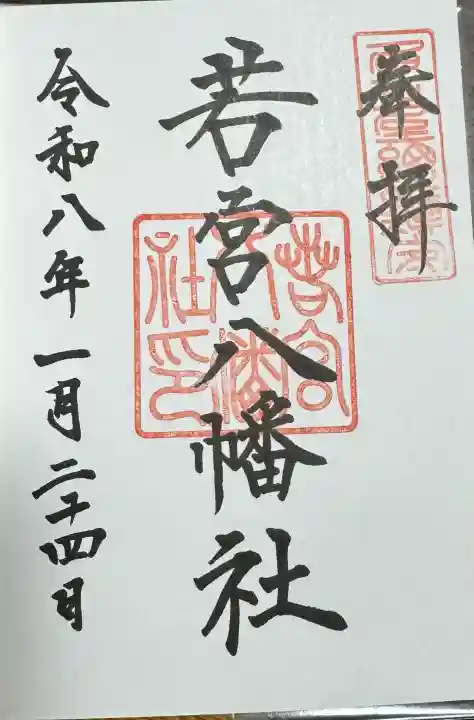 奉拝
若宮八幡社
令和八年一月二十四日
若宮八幡社印